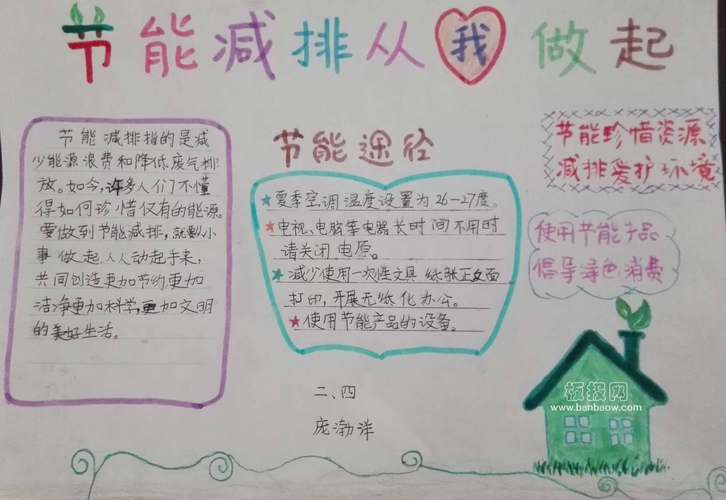 节能减排从我做起
节能减排指的是减
少能源浪费和降低废气排
放。如今,许多人们不懂
得如何珍惜仅有的能源。
要做到节能减排,就从小
事做起,人人动起手来,
共同创造更加节约更加
洁净更加科学,更加文明
的美好生活。
节能途径
★夏季空调温度设置为26-27度。
★电视、电脑等电器长时间不用时
请关闭电原。
★减少使用一次性文具纸张正反面
打印,开展无纸化办公。
★使用节能产品的设备。
二、四
庞渤洋
节能珍惜资源
减排爱护环境
使用节能产品
倡导绿色消费
板报网
www.banbaow.com